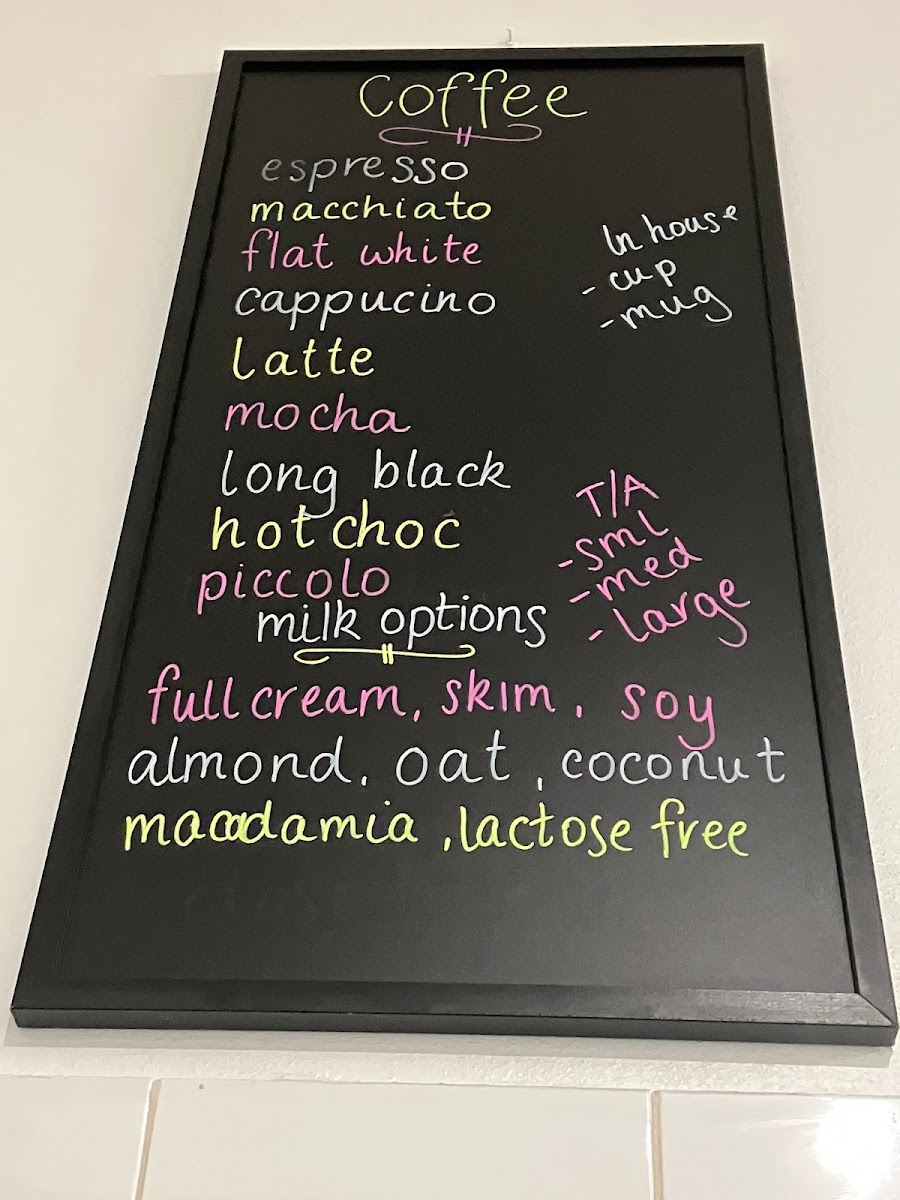 Coffee
espresso
macchiato
flat white
cappucino
latte
mocha
long black
hot choc
piccolo
In house
- cup
- mug
T/A
- sml
- med
- large
milk options
full cream, skim, soy
almond, oat, coconut
macadamia, lactose free